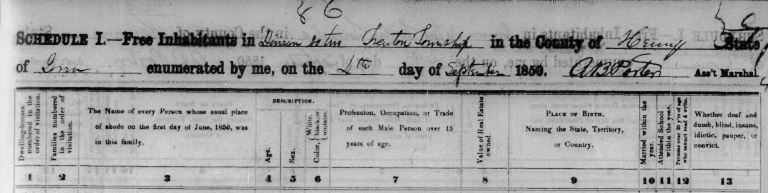 86
SCHEDULE I.—Free Inhabitants in Division No two Trenton Township in the County of Henry State
of Iowa enumerated by me, on the 4th day of September 1850. A B Porter Ass't Marshal.
DESCRIPTION.
Dwelling-houses numbered in the order of visitation.
Families numbered in the order of visitation.
The Name of every Person whose usual place of abode on the first day of June, 1850, was in this family.
Age.
Sex.
Color, White, black, or mulatto.
Profession, Occupation, or Trade of each Male Person over 15 years of age.
Value of Real Estate owned.
PLACE OF BIRTH. Naming the State, Territory, or Country.
Married within the year.
Attended School within the year.
Persons over 20 y'rs of age who cannot read & write.
Whether deaf and dumb, blind, insane, idiotic, pauper, or convict.
1 2 3 4 5 6 7 8 9 10 11 12 13